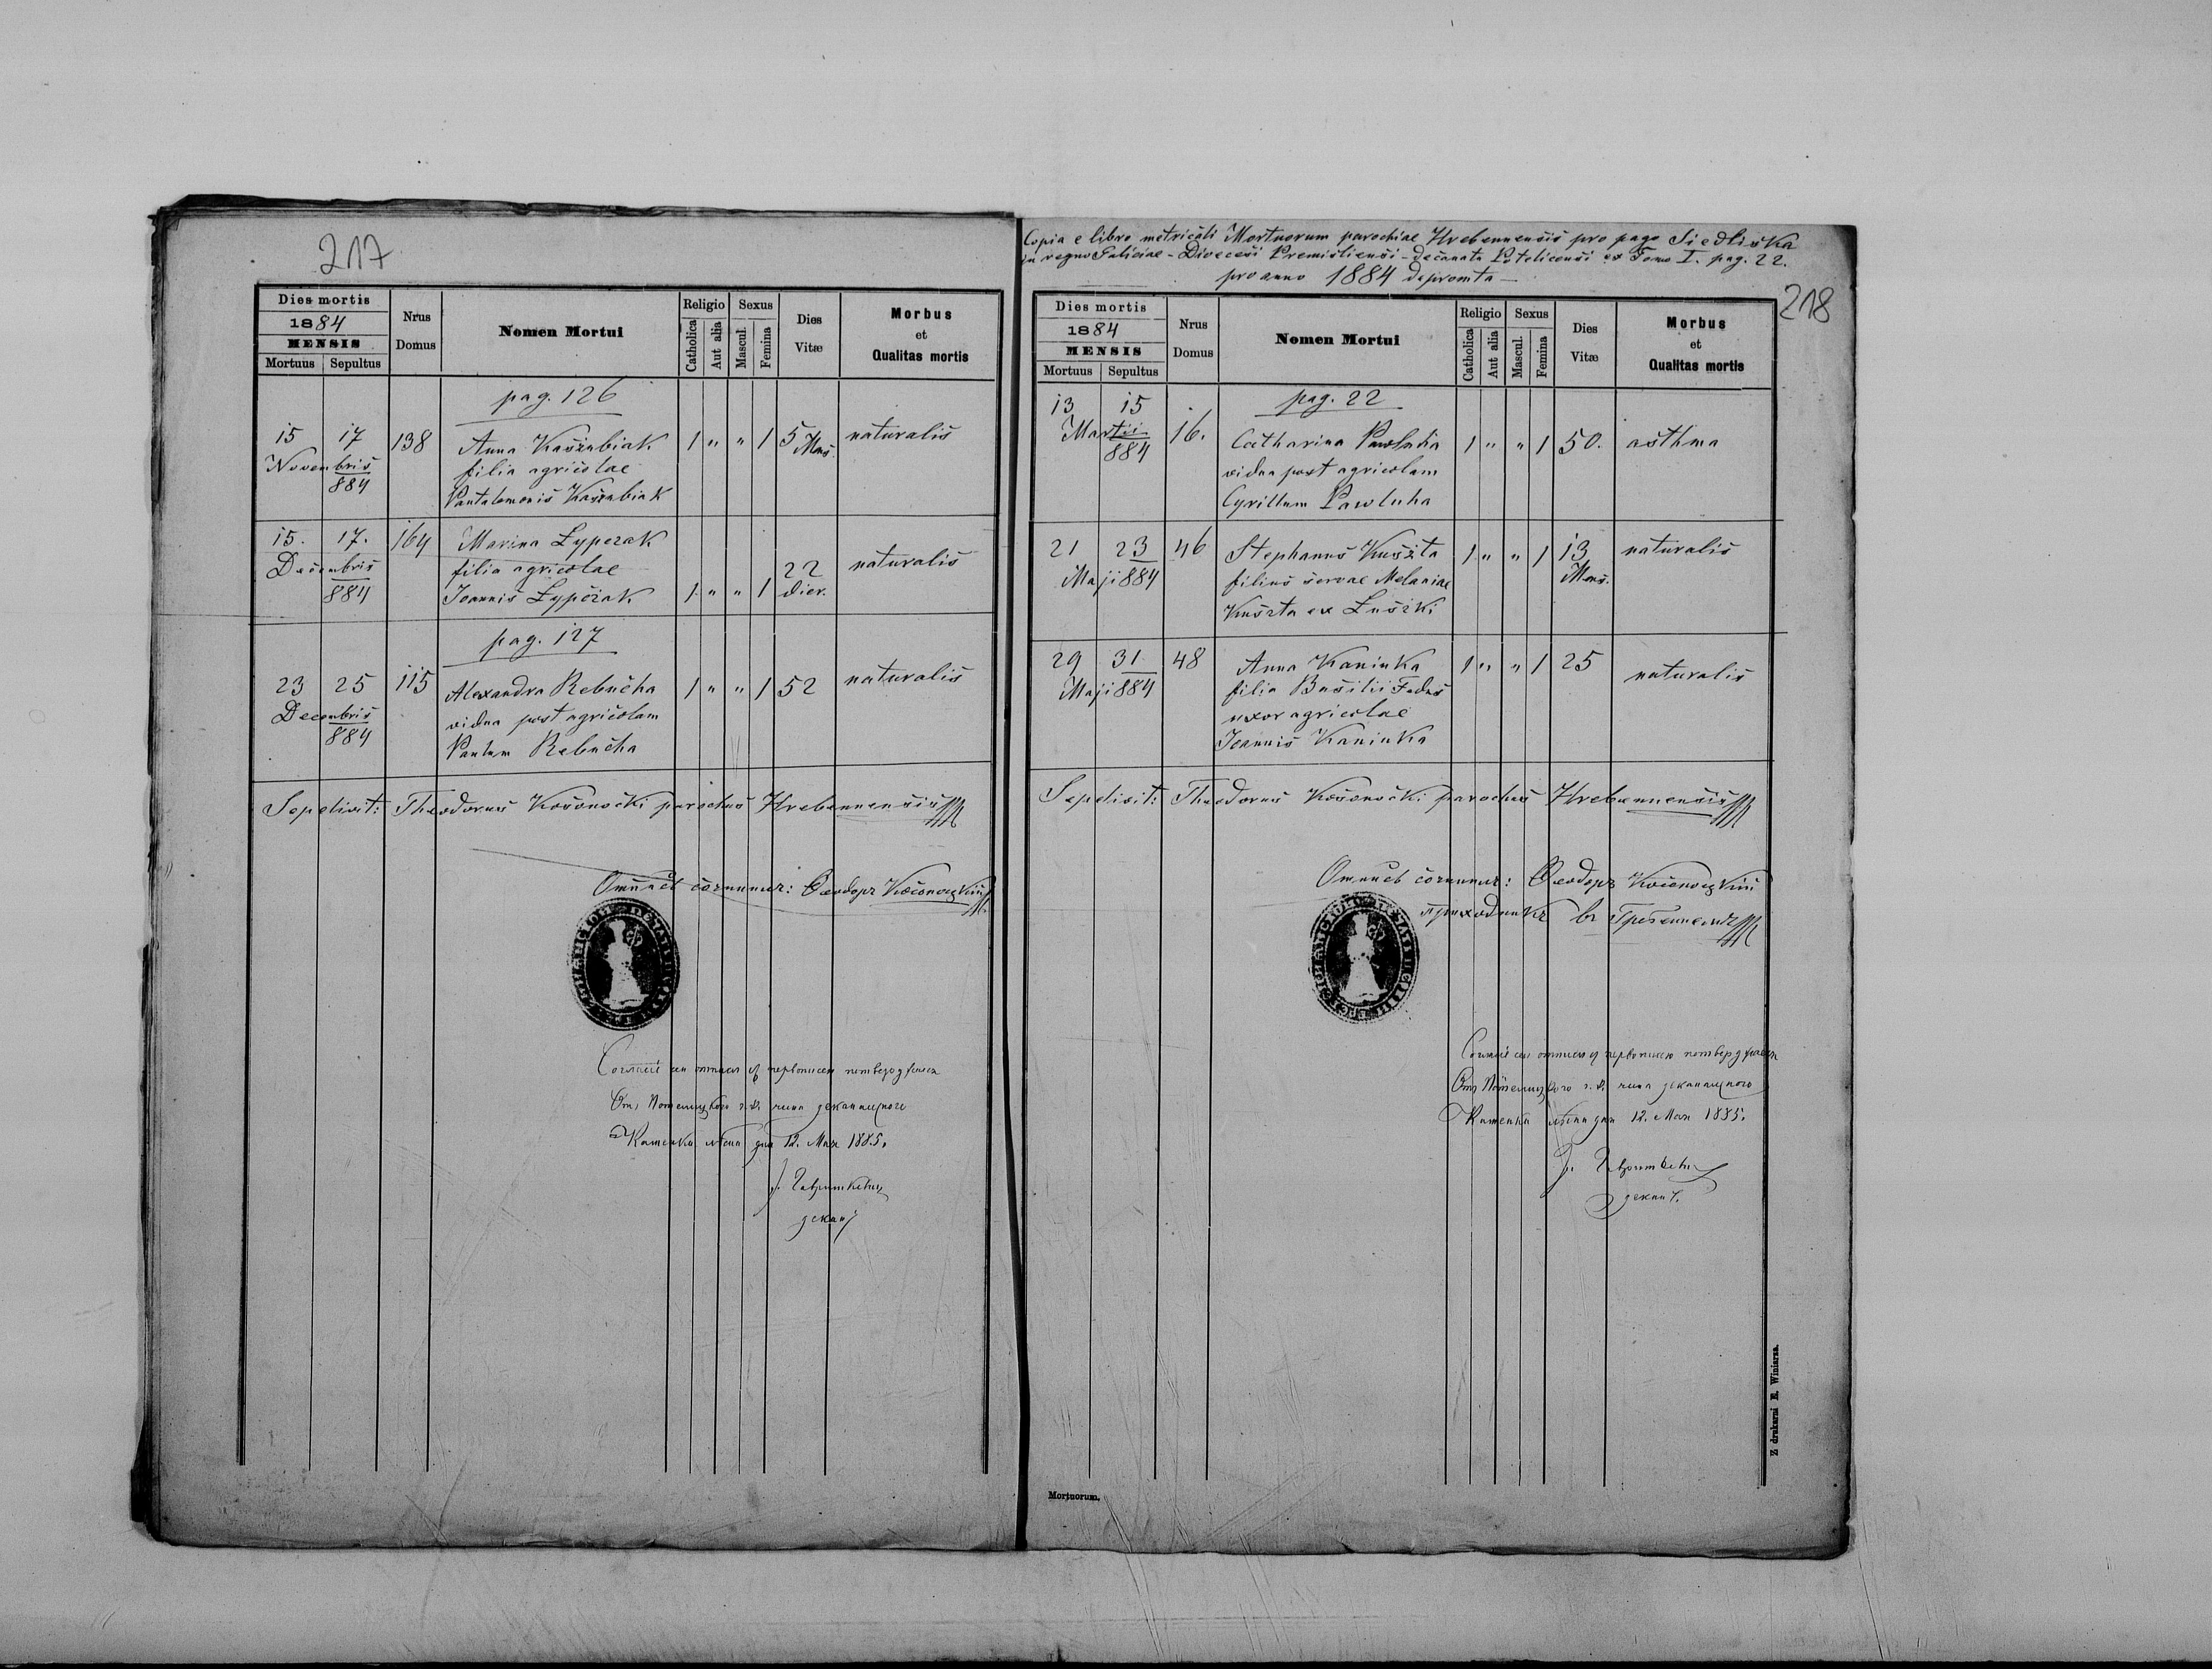 217
Dies mortis
1884
MENSIS
Mortuus Sepultus
Nrus
Domus
Nomen Mortui
Religio
Catholica
Aut alia
Sexus
Mascul.
Femina
Dies
Vitæ
Morbus
et
Qualitas mortis
pag. 126
15 17 138 Anna Kaszubiak 1 " " 1 5 Mens. naturalis
Novembris filia agricolae
884 Pantalemonis Kaszubiak
15. 17. 164 Marina Łypczak
Decembris filia agricolae 22 naturalis
884 Joannis Łypczak 1 " " 1 dier.
pag. 127
23 25 115 Alexandra Rebucha 1 " " 1 52 naturalis
Decembris vidua post agricolam
884 Paulum Rebucha
Sepelivit: Theodorus Kosonocki parochus Hrebennensis
Отпись сочинилъ: Ѳеодоръ Косоноцкій
Отъ Потелицкого г.к. чина деканацного
Каменка дня 12. Мая 1885.
декан
Copia e libro metricali Mortuorum parochiae Hrebennensis pro pago Siedliska
in regno Galiciae - Dioecesi Premisliensi - decanatu Potelicensi ex Tomo I. pag. 22.
pro anno 1884 depromta
218
Dies mortis
1884
MENSIS
Mortuus Sepultus
Nrus
Domus
Nomen Mortui
Religio
Catholica
Aut alia
Sexus
Mascul.
Femina
Dies
Vitæ
Morbus
et
Qualitas mortis
pag. 22
13 15 16. Catharina Pawluha 1 " " 1 50. asthma
Martii vidua post agricolam
884 Cyrillum Pawluha
21 23 46 Stephanus Kuszta 1 " " 1 13 naturalis
Maji 884 filius servae Melaniae Mens.
Kuszta ex Łuszki
29 31 48 Anna Kaninka 1 " " 1 25 naturalis
Maji 884 filia Basilii Fedus
uxor agricolae
Joannis Kaninka
Sepelivit: Theodorus Kosonocki parochus Hrebennensis
Отпись сочинилъ: Ѳеодоръ Косоноцкій
приходникъ въ Гребенномъ
Отъ Потелицкого г.к. чина деканацного
Каменка дня 12. Мая 1885.
декан
Z drukarni E. Winiarza.
Mortuorum.